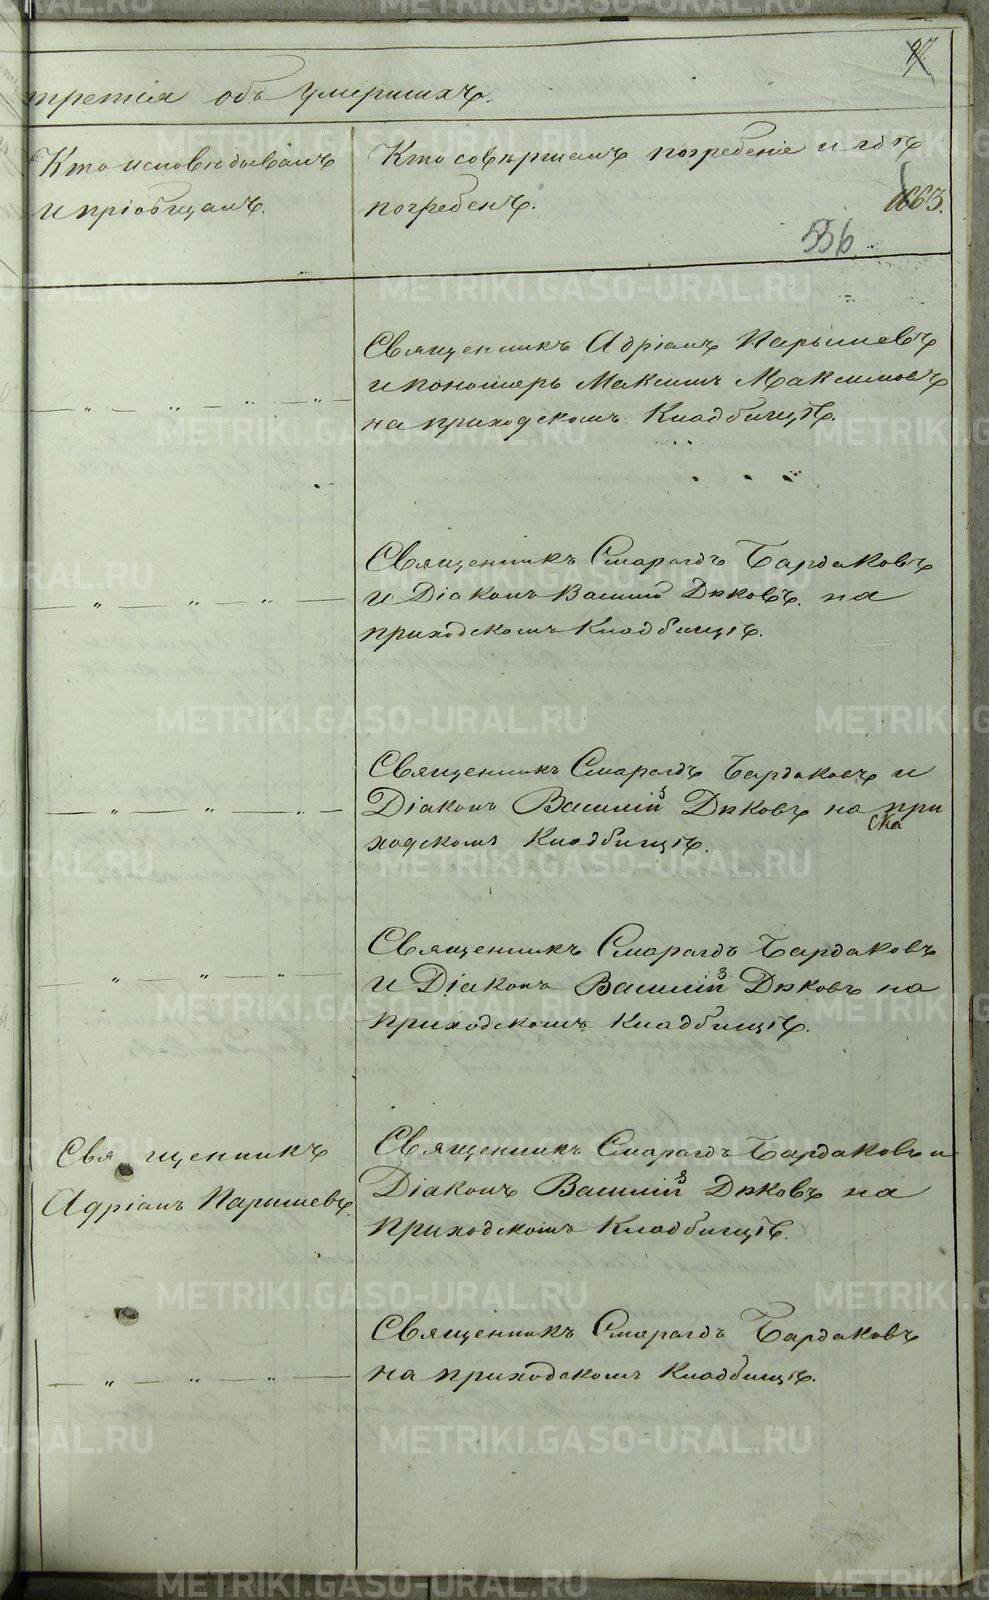 третія объ умершихъ.
Кто исповѣдывалъ
и пріобщалъ.
Кто совершалъ погребеніе и гдѣ
погребенъ.
663.
556
Священникъ Адріанъ Парышевъ
и пономарь Максимъ Максимовъ
на приходскомъ Кладбищѣ.
Священникъ Смарагдъ Бардаковъ
и Діаконъ Василій Дяковъ на
приходскомъ Кладбищѣ.
Священникъ Смарагдъ Бардаковъ и
Діаконъ Василій Дяковъ на при
ска
ходскомъ Кладбищѣ.
Священникъ Смарагдъ Бардаковъ
и Діаконъ Василій Дяковъ на
приходскомъ Кладбищѣ.
Священникъ
Адріанъ Парышевъ.
Священникъ Смарагдъ Бардаковъ и
Діаконъ Василій Дяковъ на
приходскомъ Кладбищѣ.
Священникъ Смарагдъ Бардаковъ
на приходскомъ Кладбищѣ.
METRIKI.GASO-URAL.RU